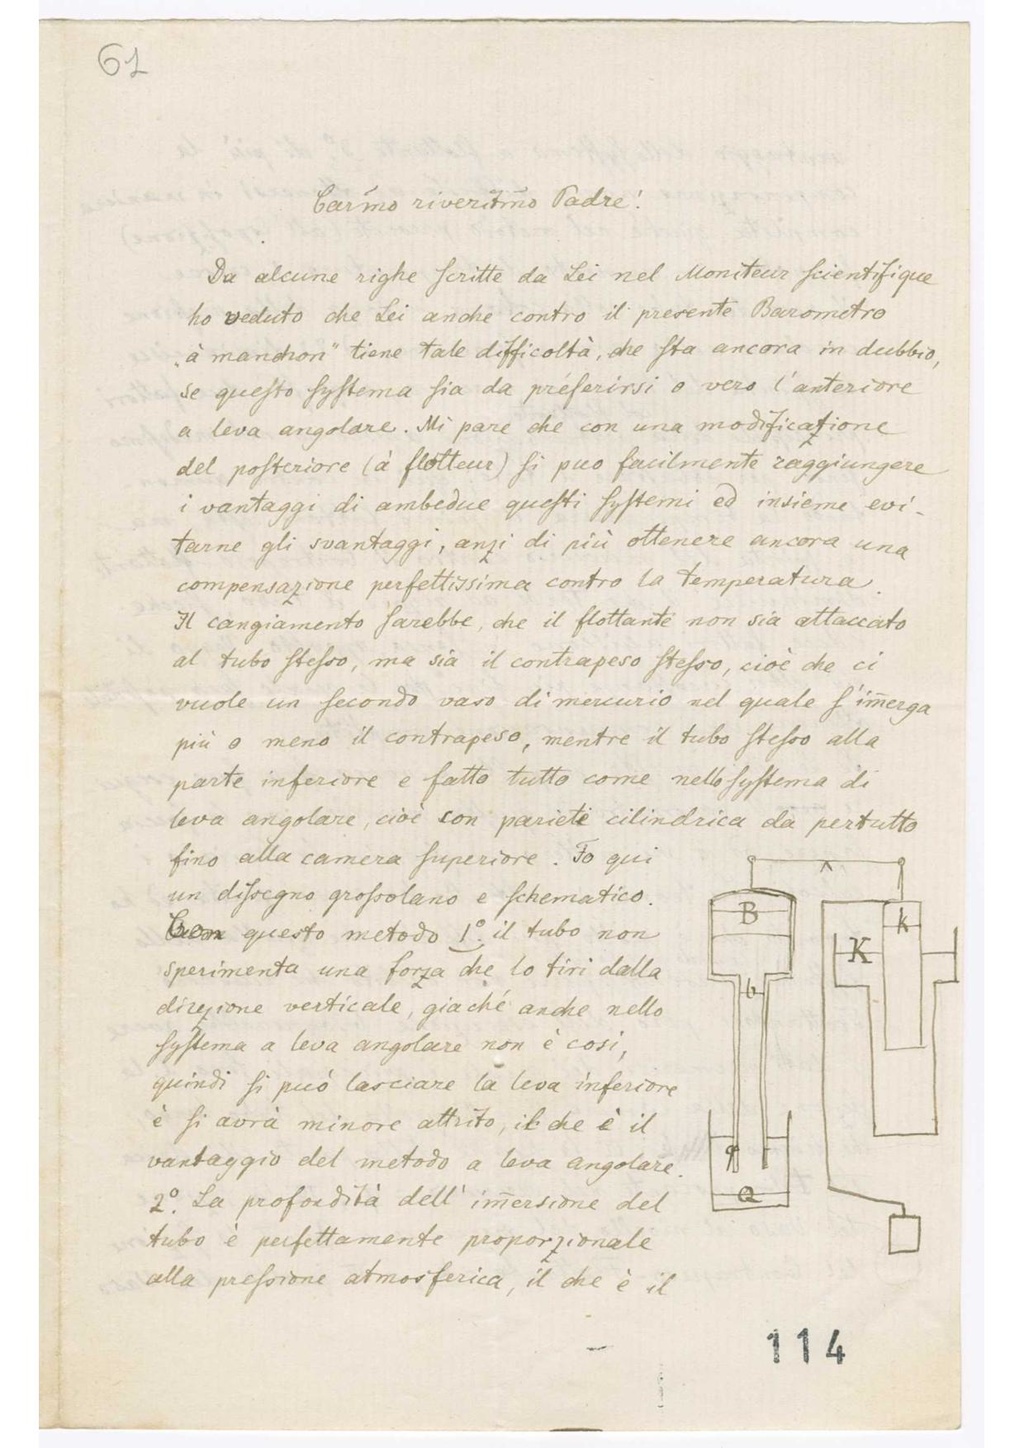 61
Carm̃o riveritm̃o Padre!
Da alcune righe scritte da Lei nel Moniteur scientifique
ho veduto che Lei anche contro il presente Barometro
„à manchon" tiene tale difficoltà, che sta ancora in dubbio,
se questo systema sia da préferirsi o vero l'anteriore
a leva angolare. Mi pare che con una modificazione
del posteriore (à flotteur) si puo facilmente raggiungere
i vantaggi di ambedue questi systemi ed insieme evi-
tarne gli svantaggi, anzi di più ottenere ancora una
compensazione perfettissima contro la temperatura.
Il cangiamento sarebbe, che il flottante non sia attaccato
al tubo stesso, ma sia il contrapeso stesso, cioè che ci
vuole un secondo vaso di mercurio nel quale s'im̃erga
più o meno il contrapeso, mentre il tubo stesso alla
parte inferiore e fatto tutto come nello systema di
leva angolare, cioè con pariete cilindrica da pertutto
fino alla camera superiore. Fo qui
un dissegno grossolano e schematico.
Con questo metodo 1º. il tubo non
sperimenta una forza che lo tiri dalla
direzione verticale, giaché anche nello
systema a leva angolare non è così,
quindi si può lasciare la leva inferiore
è si avrà minore attrito, il che è il
vantaggio del metodo a leva angolare.
2º. La profondità dell' im̃ersione del
tubo è perfettamente proporzionale
alla pressione atmosferica, il che è il
B
b
q
Q
K
k
114